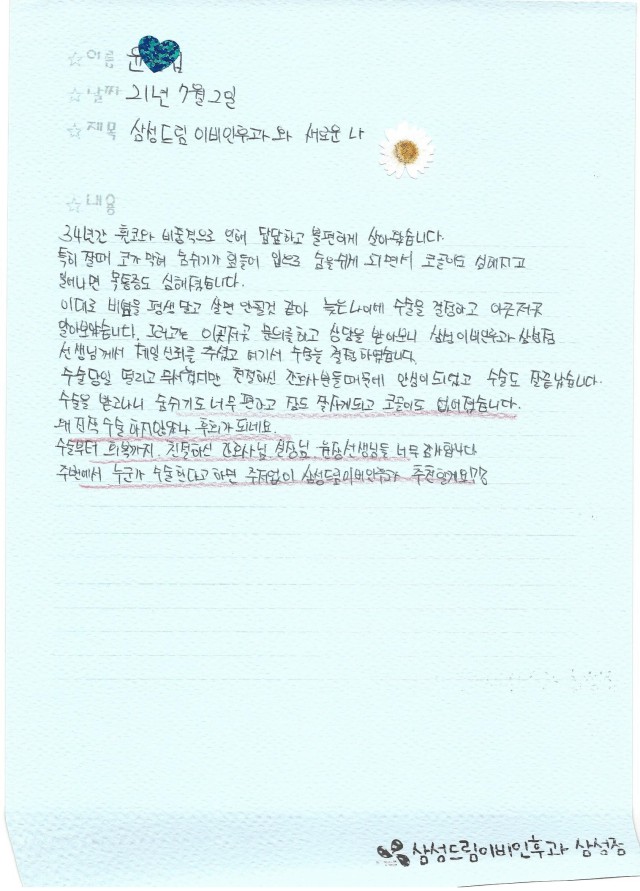 ☆이름 윤
☆날짜 21년 7월 2일
☆제목 삼성드림이비인후과와 새로운 나
☆내용
34년간 휜코와 비중격으로 인해 답답하고 불편하게 살아왔습니다.
특히 잘때 코가 막혀 숨쉬기가 힘들어 입으로 숨을쉬게 되면서 코골이도 심해지고
일어나면 목통증도 심해졌습니다.
이대로 비염을 평생 달고 살면 안될것 같아 늦은나이에 수술을 결정하고 이곳저곳
알아보았습니다. 그러고는 이곳저곳 문의를하고 상담을 받아보니 삼성이비인후과 삼성점
선생님께서 제일 신뢰를 주셨고 여기서 수술을 결정하였습니다.
수술당일 떨리고 무서웠지만 친절하신 간호사분들때문에 안심이되었고 수술도 잘끝났습니다.
수술을 받고나니 숨쉬기도 너무 편하고 잠도 잘자게되고 코골이도 없어졌습니다.
왜 진작 수술하지않았나 후회가 되네요.
수술부터 회복까지. 친절하신 간호사님, 실장님, 원장선생님들 너무 감사합니다
주변에서 누군가 수술한다고 하면 주저없이 삼성드림이비인후과 추천할게요??
삼성드림이비인후과 삼성점